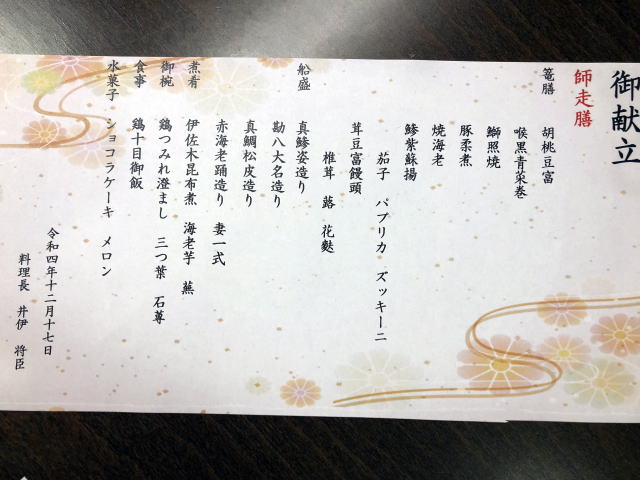 御献立
師走膳
篭膳 胡桃豆富
喉黒青菜巻
鰤照焼
豚柔煮
焼海老
鯵紫蘇揚
茄子 パプリカ ズッキーニ
茸豆富饅頭
椎茸 蕗 花麩
船盛 真鯵姿造り
勘八大名造り
真鯛松皮造り
赤海老踊造り 妻一式
煮肴 伊佐木昆布煮 海老芋 蕪
御椀 鶏つみれ澄まし 三つ葉 石蓴
食事 鶏十目御飯
水菓子 ショコラケーキ メロン
令和四年十二月十七日
料理長 井伊 将臣